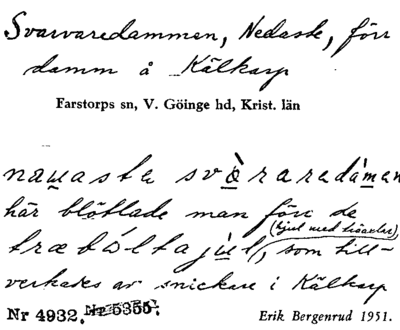 Svarvaredammen, Nedaste, förr
damm å Kälkarp
Farstorps sn, V. Göinge hd, Krist. län
nauasta svòraredàmen
här blötlade man förr de
(hjul med träaxlar)
træbóltajul, som till-
verkades av snickare i Kälkarp
Nr 4932. Nr 5355. Erik Bergenrud 1951.